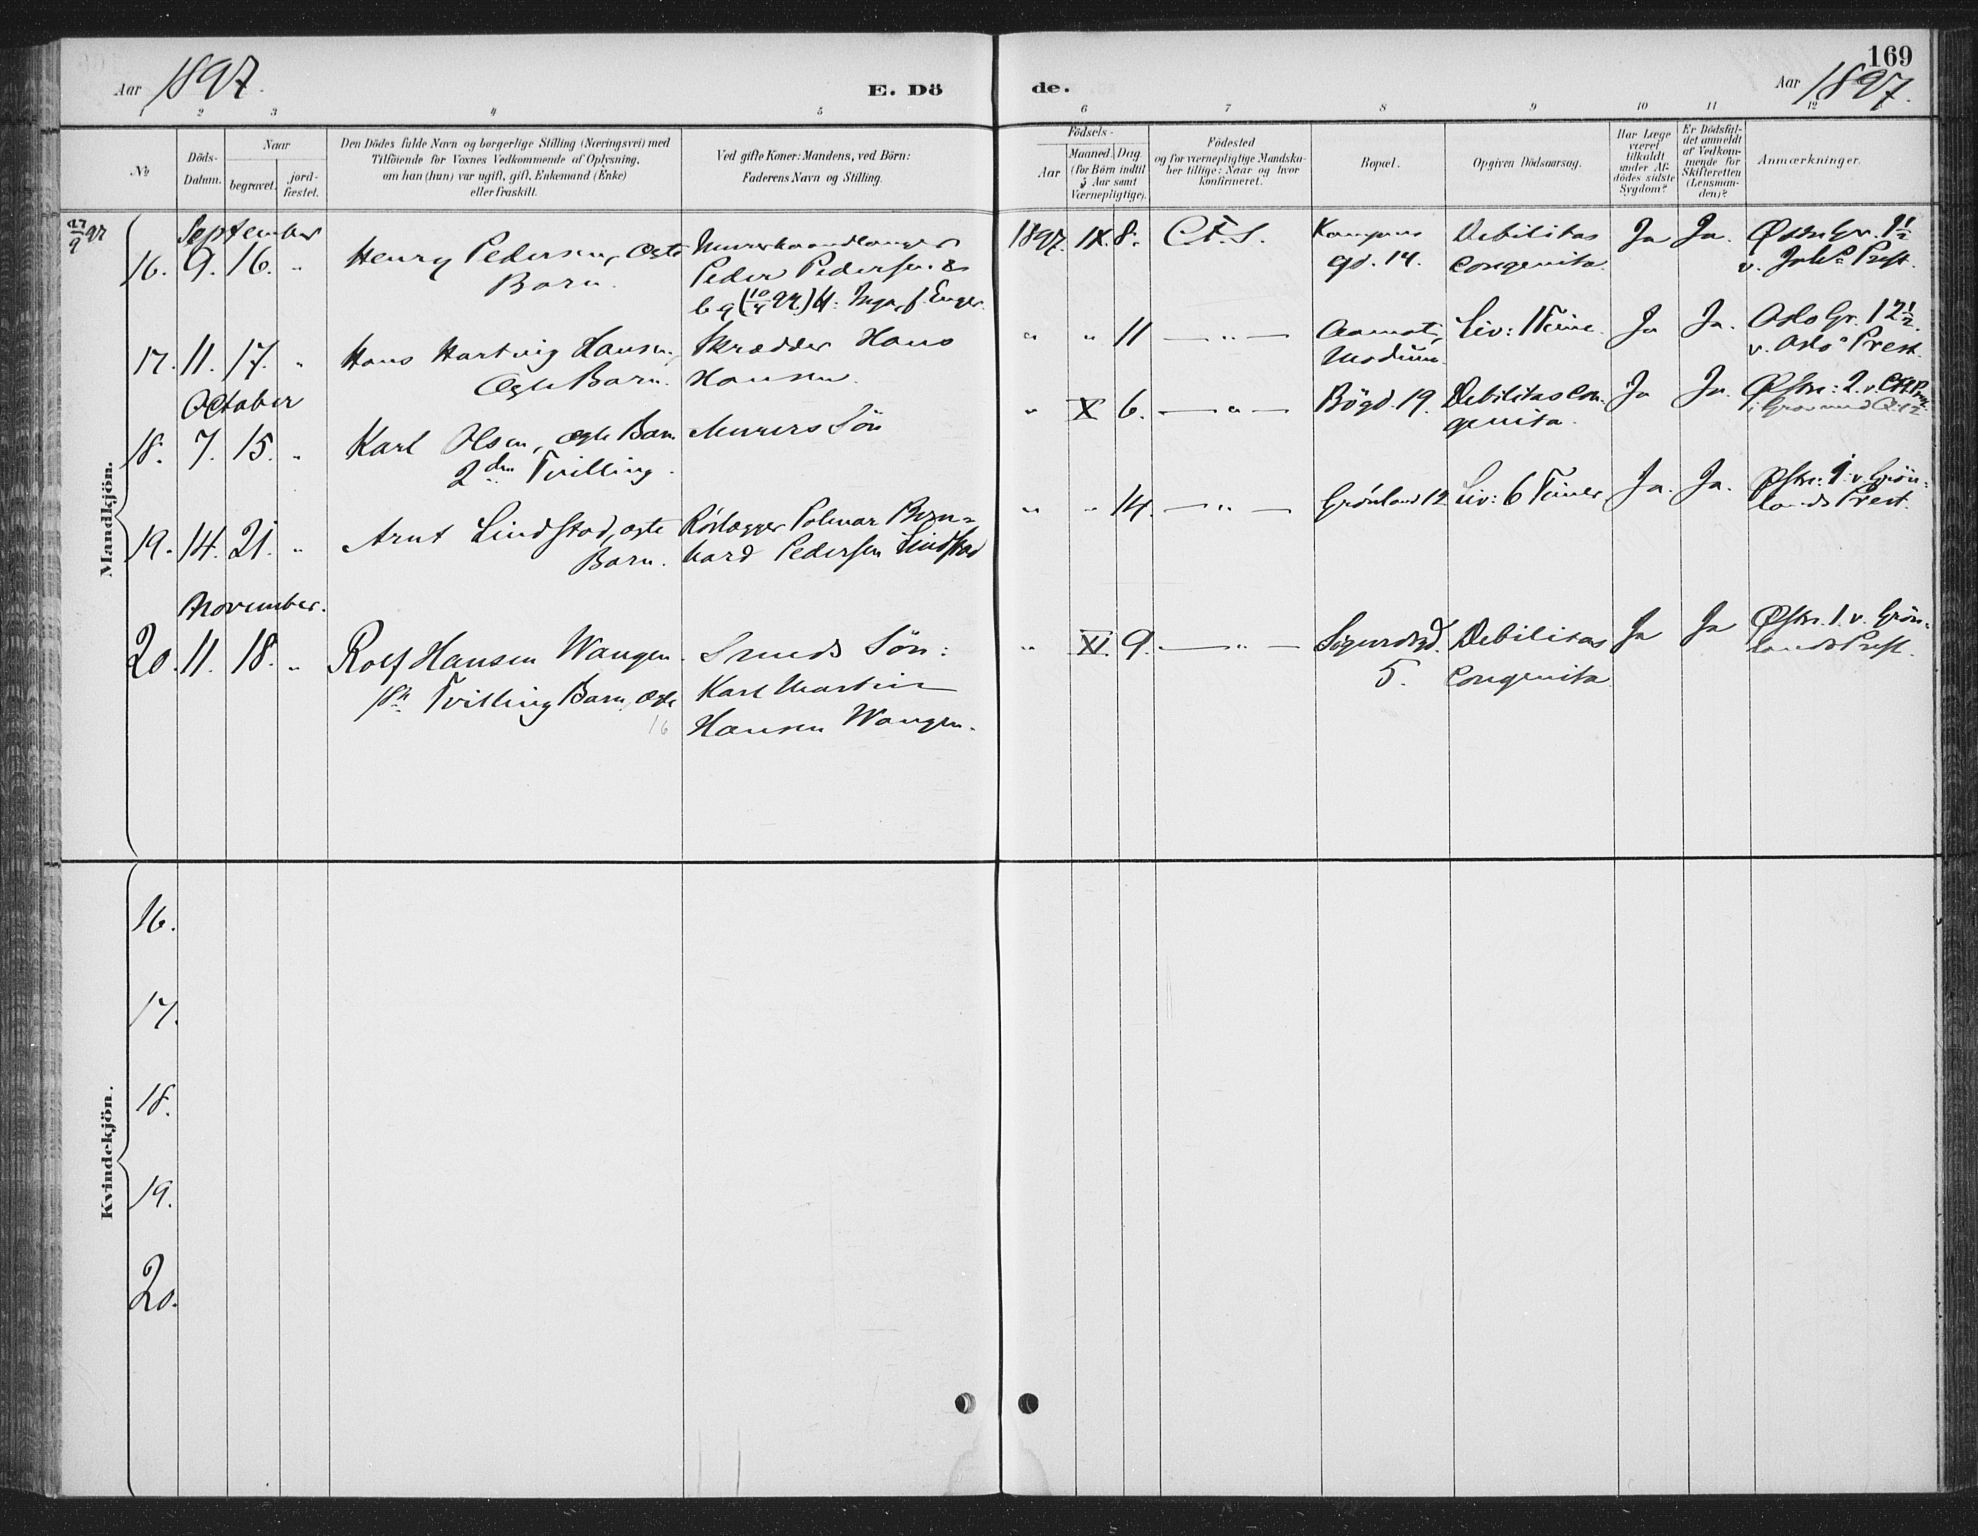 169
Aar 1897.
E. Dö
de.
Aar 1897.
1 2 3 4 5 6 7 8 9 10 11 12
No
Döds-
Datum.
Naar
begravet.
jord-
fæstet.
Den Dödes fulde Navn og borgerlige Stilling (Næringsvei) med
Tilföiende for Voxnes Vedkommende af Oplysning,
om han (hun) var ugift, gift, Enkemand (Enke)
eller fraskilt.
Ved gifte Koner: Mandens, ved Börn:
Faderens Navn og Stilling.
Födsels-
Aar
Maaned.
Dag.
(for Börn indtil
5 Aar samt
Værnepligtige).
Födested
og for værnepligtige Mandska-
ber tillige: Naar og hvor
konfirmeret.
Bopæl.
Opgiven Dödsaarsag.
Har Læge
været
tilkaldt
under Af-
dödes sidste
Sygdom?
Er Dödsfal-
det anmeldt
af Vedkom-
mende for
Skifteretten
(Lensman-
den)?
Anmærkninger.
Mandkjön.
27/9 97
September
16. 9. 16. „ Henry Pedersen, ægte
Barn.
Murerhaandlanger
Peder Pedersen &
1897. IX. 8. C.F.S.
Kampens
gd. 14.
Debilitas
Congenita.
Ja Ja.
Østre Gr. 1 1/2
v. Prest.
17. 11. 17. „ Hans Hartvig Hansen,
Ægte Barn.
Skrædder Hans
Hansen.
„ „ 11 — „ —
Aamot,
Modum.
Liv: 1 Time.
Ja Ja.
Oslo Gr. 12 1/2.
v. Oslo Prest.
October
18. 7. 15. „ Karl Olsen, ægte Barn
2den Tvilling.
Murers Sön
„ X 6. — „ —
Bögd. 19.
Debilitas Con-
genita.
Ja Ja.
19. 14. 21. „ Arnt Lindstad, ægte
Barn.
Rörlægger Polmar Bern-
hard Pedersen Lindstad
„ „ 14. — „ —
Grönland 12
Liv: 6 Timer
Ja. Ja.
Østre: 1 v. Grön-
lands Prest.
November.
20. 11. 18. „ Rolf Hansen Wangen.
1ste Tvilling Barn, ægte
16
Smeds Sön:
Karl Martin
Hansen Wangen.
„ XI. 9. — „ —
Sigurdsgd.
5.
Debilitas
Congenita.
Ja Ja
Østre. 1. v. Grön-
lands Prest.
Kvindekjön.
16.
17.
18.
19.
20.